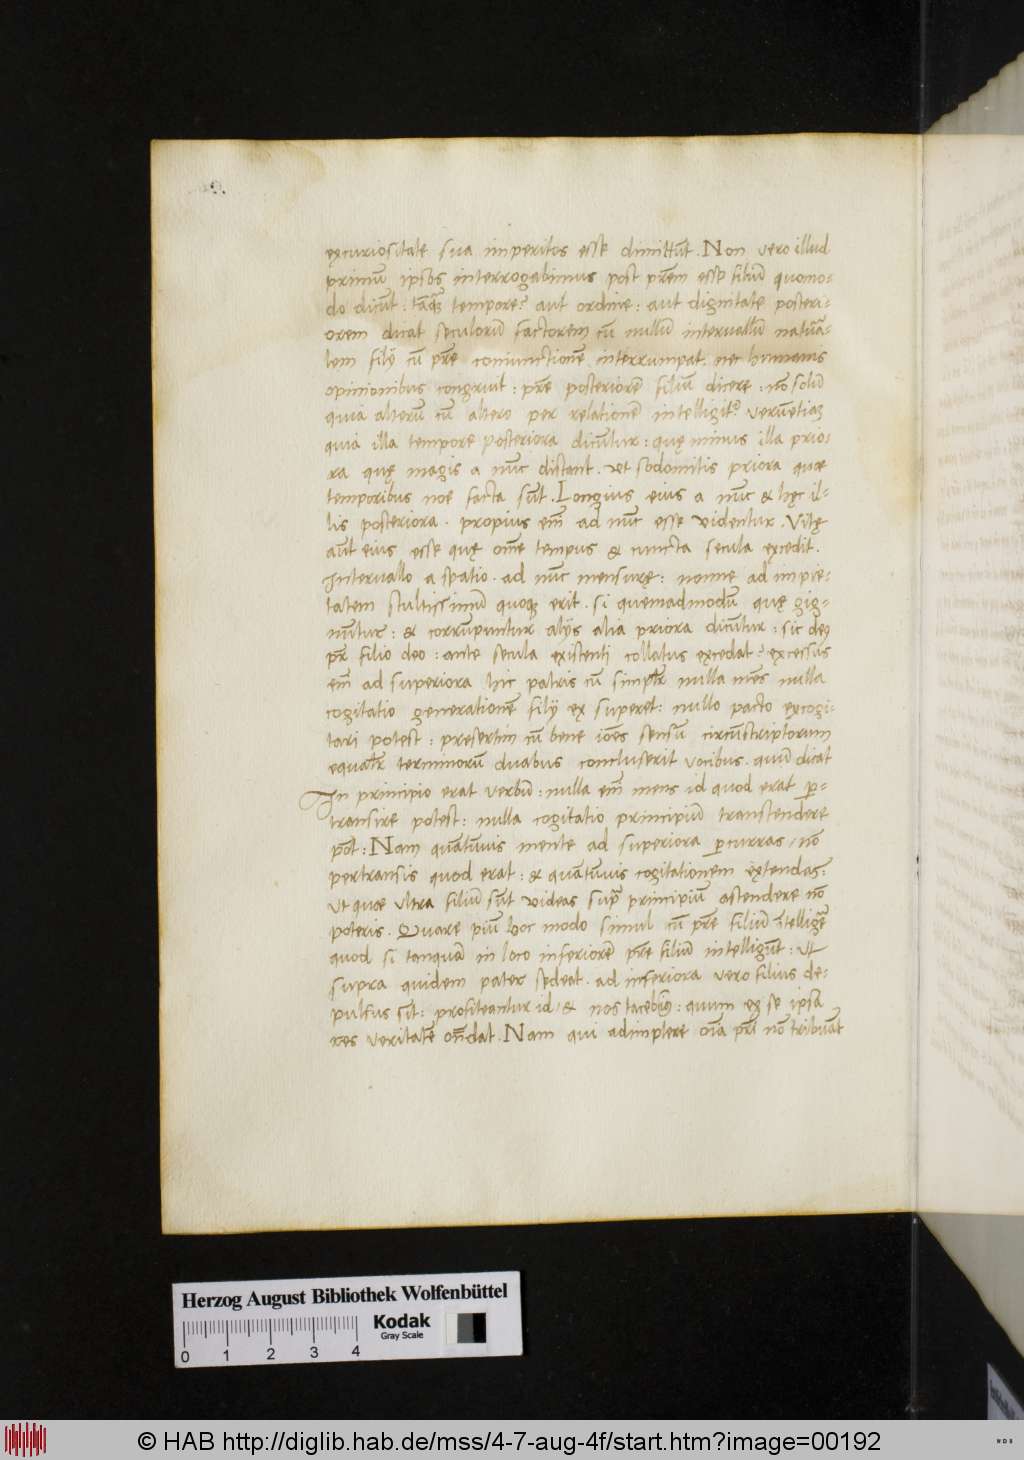 ęxcuriositate sua imperitos esse dimittūt. Non vero illud
primū ipsos interrogabimus post prēm esse filiū quomo-
do dicūt: tāq̃ tempore? aut ordine: aut dignitate posteri-
orem dicat seculorū factorem cū nullū intervallū natura-
lem filij cū prē coniunctionē interrumpat. nec humanis
opinionibus congruit: prē posteriorē filiū dicere: nō solū
quia alterū cū altero per relationē intelligit᷑ verūetiaꝫ
quia illa tempore posteriora dicūtur: quę minus illa prio-
ra quę magis a nūc distant. Ut sodomitis priora quæ
temporibus noe facta sūt. Longius eius a nūc & hęc il-
lis posteriora. propius em̄ ad nūc esse videntur. Vitę
aūt eius esse quę om̄e tempus & cuncta secula excedit.
Intervallo a spatio. ad nūc mensurę: nonne ad impie-
tatem stultissimū quoq; erit. si quemadmodū quę gig-
nūtur: & corrūpuntur alijs alia priora dicūtur: sic deꝰ
pr̄ filio deo: ante secula existenti collatus excedat? excessus
em̄ ad superiora hic patris cū simplr̄ nulla mēs nulla
cogitatio generationē filij ex superet: nullo pacto excogi-
tari potest: presertim cū bene ioēs sensū circūscriptorum
equalr̄ terminorū duabus concluserit vocibus. quū dicat
In principio erat verbū: nulla em̄ mens id quod erat p̱-
transire potest: nulla cogitatio principiū transtendere
pōt: Nam quātūvis mente ad superiora p̱curras, nō
pertransis quod erat: & quātūvis cogitationem extendas:
Ut quæ ultra filiū sūt videas supra principiū astendere nō
poteris. Quare piū hoc modo simul cū prē filiū ītelligere
quod si tanquā in loco inferiorē prē filiū intelligūt: Ut
supra quidem pater sedeat. ad inferiora vero filius de-
pulsus sit: profiteantur id, & nos tacebimꝰ: quum ex se ipsa
res veritatē oñdat. Nam qui adimplere oīa pri nō tribuāt
Herzog August Bibliothek Wolfenbüttel
0 1 2 3 4
Kodak
Gray Scale
© HAB http://diglib.hab.de/mss/4-7-aug-4f/start.htm?image=00192